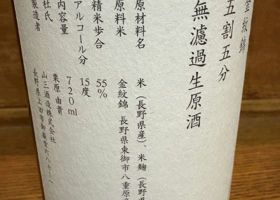 五割五分
無濾過生原酒
原材料名 米(長野県産)、米麹(長野県
原料米 金紋錦 長野県東御市八重原
精米歩合 55%
アルコール分 15度
内容量 720ml
杜氏 栗原由貴
製造者 山三酒造株式会社
長野県上田市御嶽堂